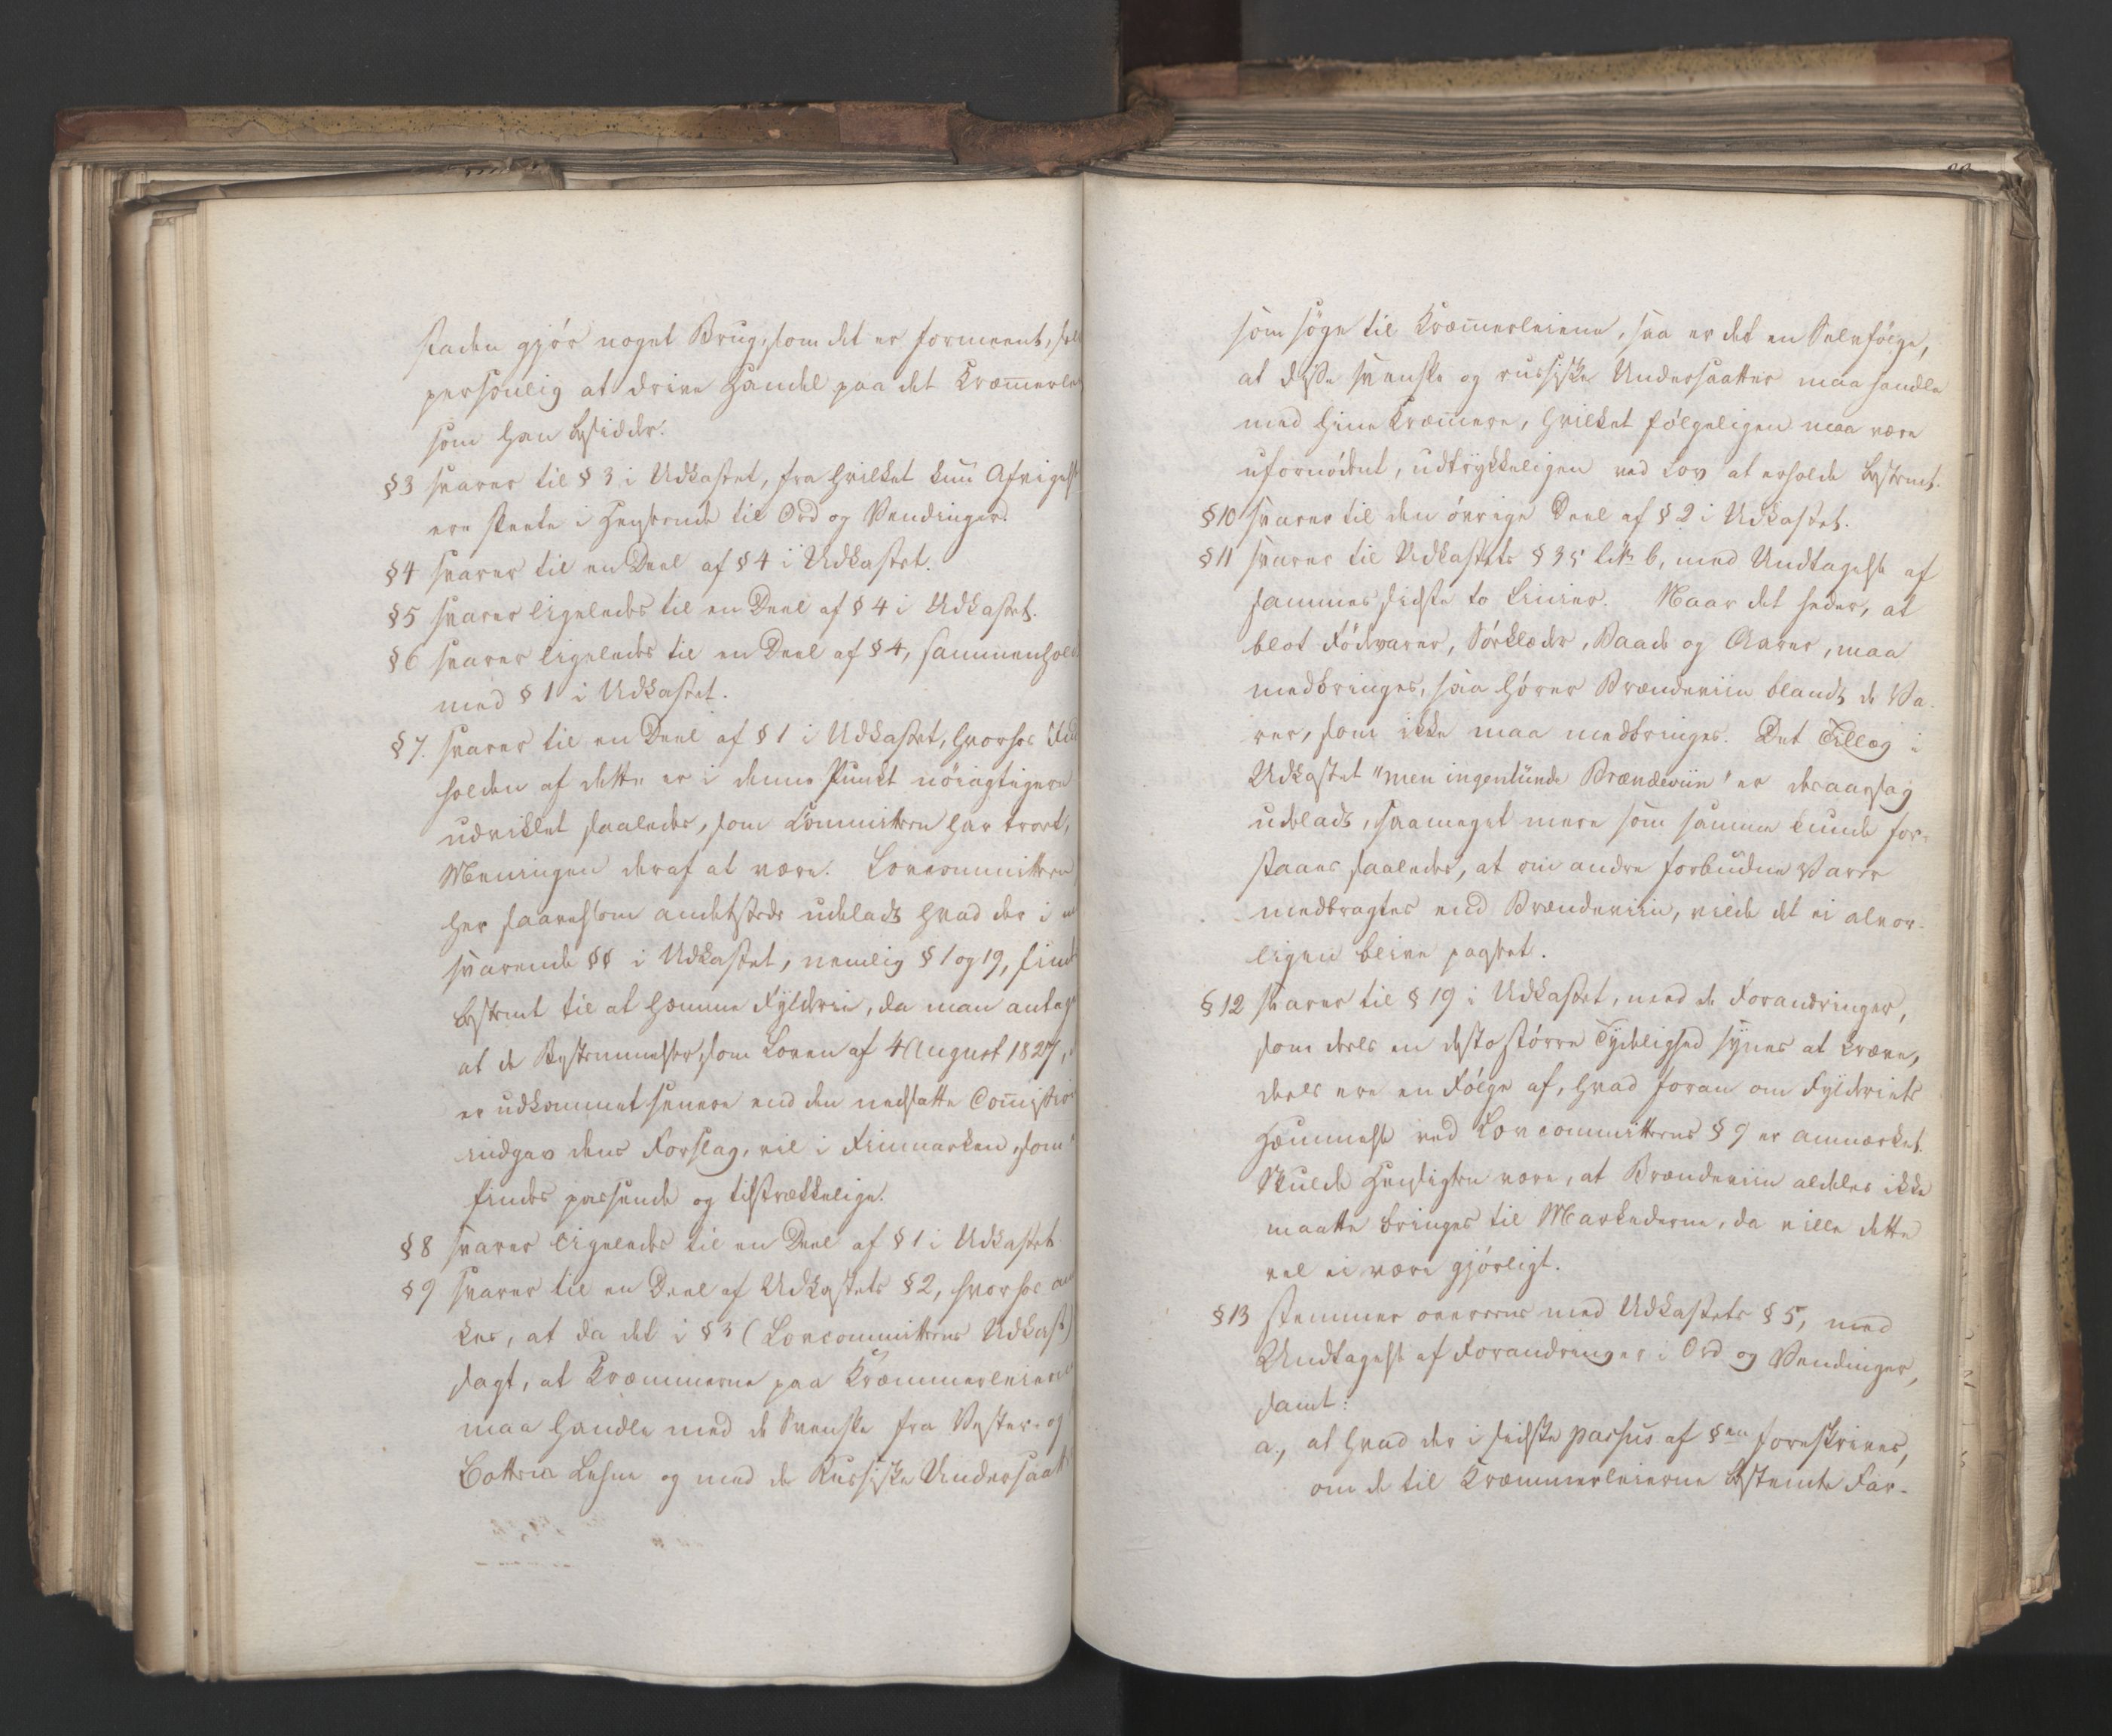 staden gjør noget Brug, som det er formeent, selv
personlig at drive Handel paa det Kræm̅erlei
som han besidder.
§3 svarer til § 3 i Udkastet, fra hvilket kun Afvigelser
ere skeete i Henseende til Ord og Vendinger.
§4 svarer til en Deel af § 4 i Udkastet.
§5 svarer ligeledes til en Deel af § 4 i Udkastet.
§6 svarer ligeledes til en Deel af § 4, sammenholdt
med § 1 i Udkastet.
§7. svarer til en Deel af § 1 i Udkastet, hvorhos
holden af dette er i denne Punkt nøiagtigere
udviklet saaledes, som Committeen har troet,
Meningen deraf at være. Lovcommitteen
her saavelsom andetsteds udeladt hvad der i
svarende §§ i Udkastet, nemlig § 1 og 19, findes
bestemt til at hæmme Fylderie, da man antager
at de Bestemmelser, som Loven af 4 August 1827,
er udkommet senere end den nedsatte Com̅ission
indgav dens Forslag, vil i Finmarken, som
findes passende og tilstrækkelige.
§8 svarer ligeledes til en Deel af § 1 i Udkastet
§9 svarer til en Deel af Udkastets § 2, hvorhos
kes, at da det i § 3 (Lovcommitteens Udkast)
sagt, at Kræmmerne paa Kræmmerleierne
maa handle med de Svenske fra Vester- og
Bottens Lehne og med de Russiske Undersaatter
som søge til Kræm̅erleiene, saa er det en Selvfølge,
at disse svenske og russiske Undersaatter maa handle
med hine Kræm̅ere, hvilket følgeligen maa være
ufornødent, udtrykkeligen ved Lov at erholde bestemt.
§10 svarer til den øvrige Deel af § 2 i Udkastet.
§11 svarer til Udkastets § 35 litr. b, med Undtagelse af
sammes sidste to Linier. Naar det heder, at
blot Fødevarer, Sørklæder, Baade og Aarer, maa
medbringes, saa hører Brændeviin blandt de Va-
rer, som ikke maa medbringes. Det Tillæg i
Udkastet "men ingenlunde Brændeviin" er desaarsag
udeladt, saameget mere som samme kunde for-
staaes saaledes, at om andre forbudne Varer
medbragtes end Brændeviin, vilde det ei alvor-
ligen blive paaseet.
§12 svarer til § 19 i Udkastet, med de Forandringer,
som deels en desto større Tydelighed synes at kræve,
deels ere en Følge af, hvad foran om Fylderiets
Hæmmelse ved Lovcommitteens § 9 er anmærket.
Skulde Hensigten være, at Brændeviin aldeles ikke
maatte bringes til Markederne, da ville dette
vel ei være gjørligt.
§13 stemmer overeens med Udkastets § 5, med
Undtagelse af Forandringer i Ord og Vendinger,
samt:
a., at hvad der i sidste passus af §en foreskrives,
om de til Kræmmerleierne bestemte Far-